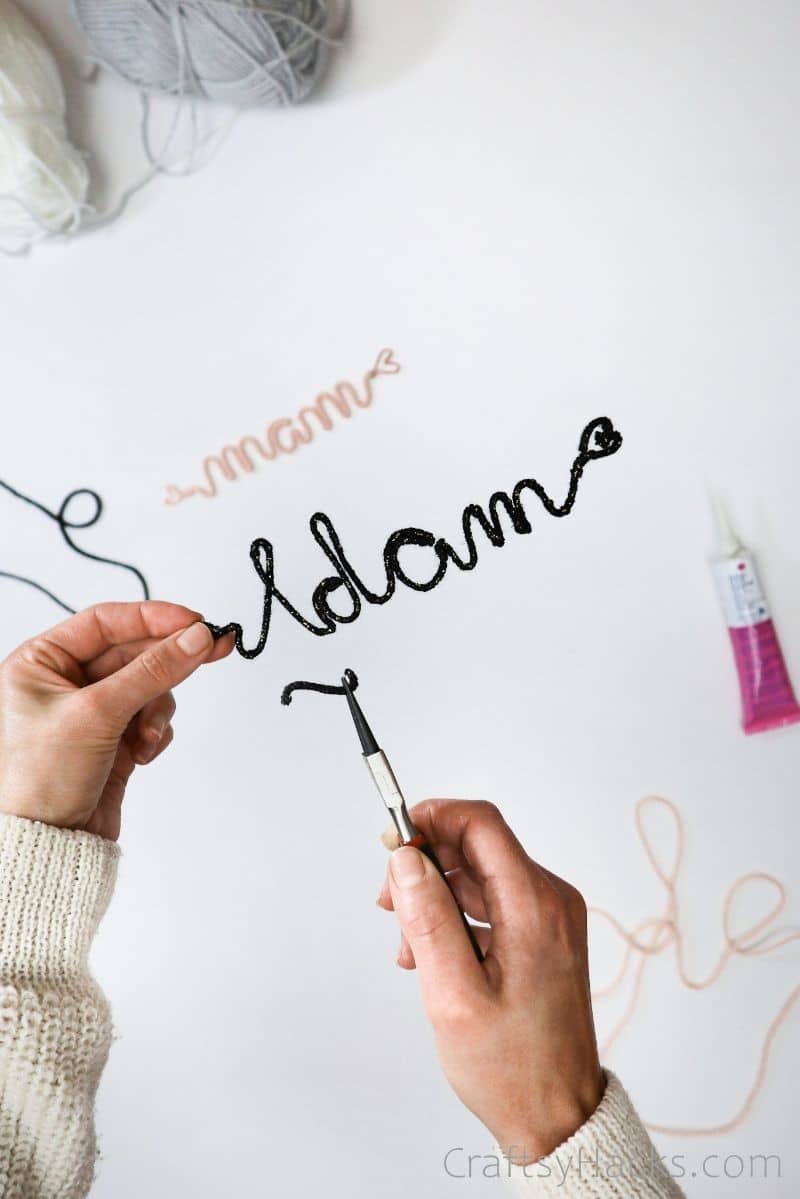 mam
Adam
CraftsyHacks.com